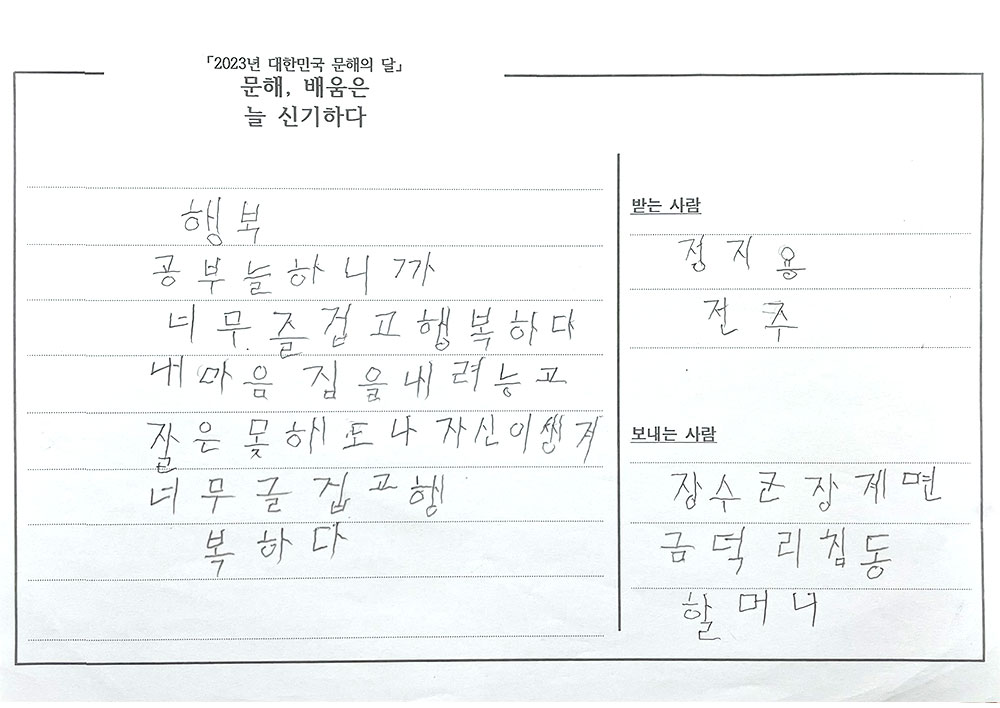 「2023년 대한민국 문해의 달」
문해, 배움은
늘 신기하다
행복
공부늘하니까
너무즐겁고행복하다
내마음 짐을내려능고
잘은못해도나자신이생겨
너무글겁고행
복하다
받는 사람
정지용
전주
보내는 사람
장수군장계면
금덕리침동
할머니